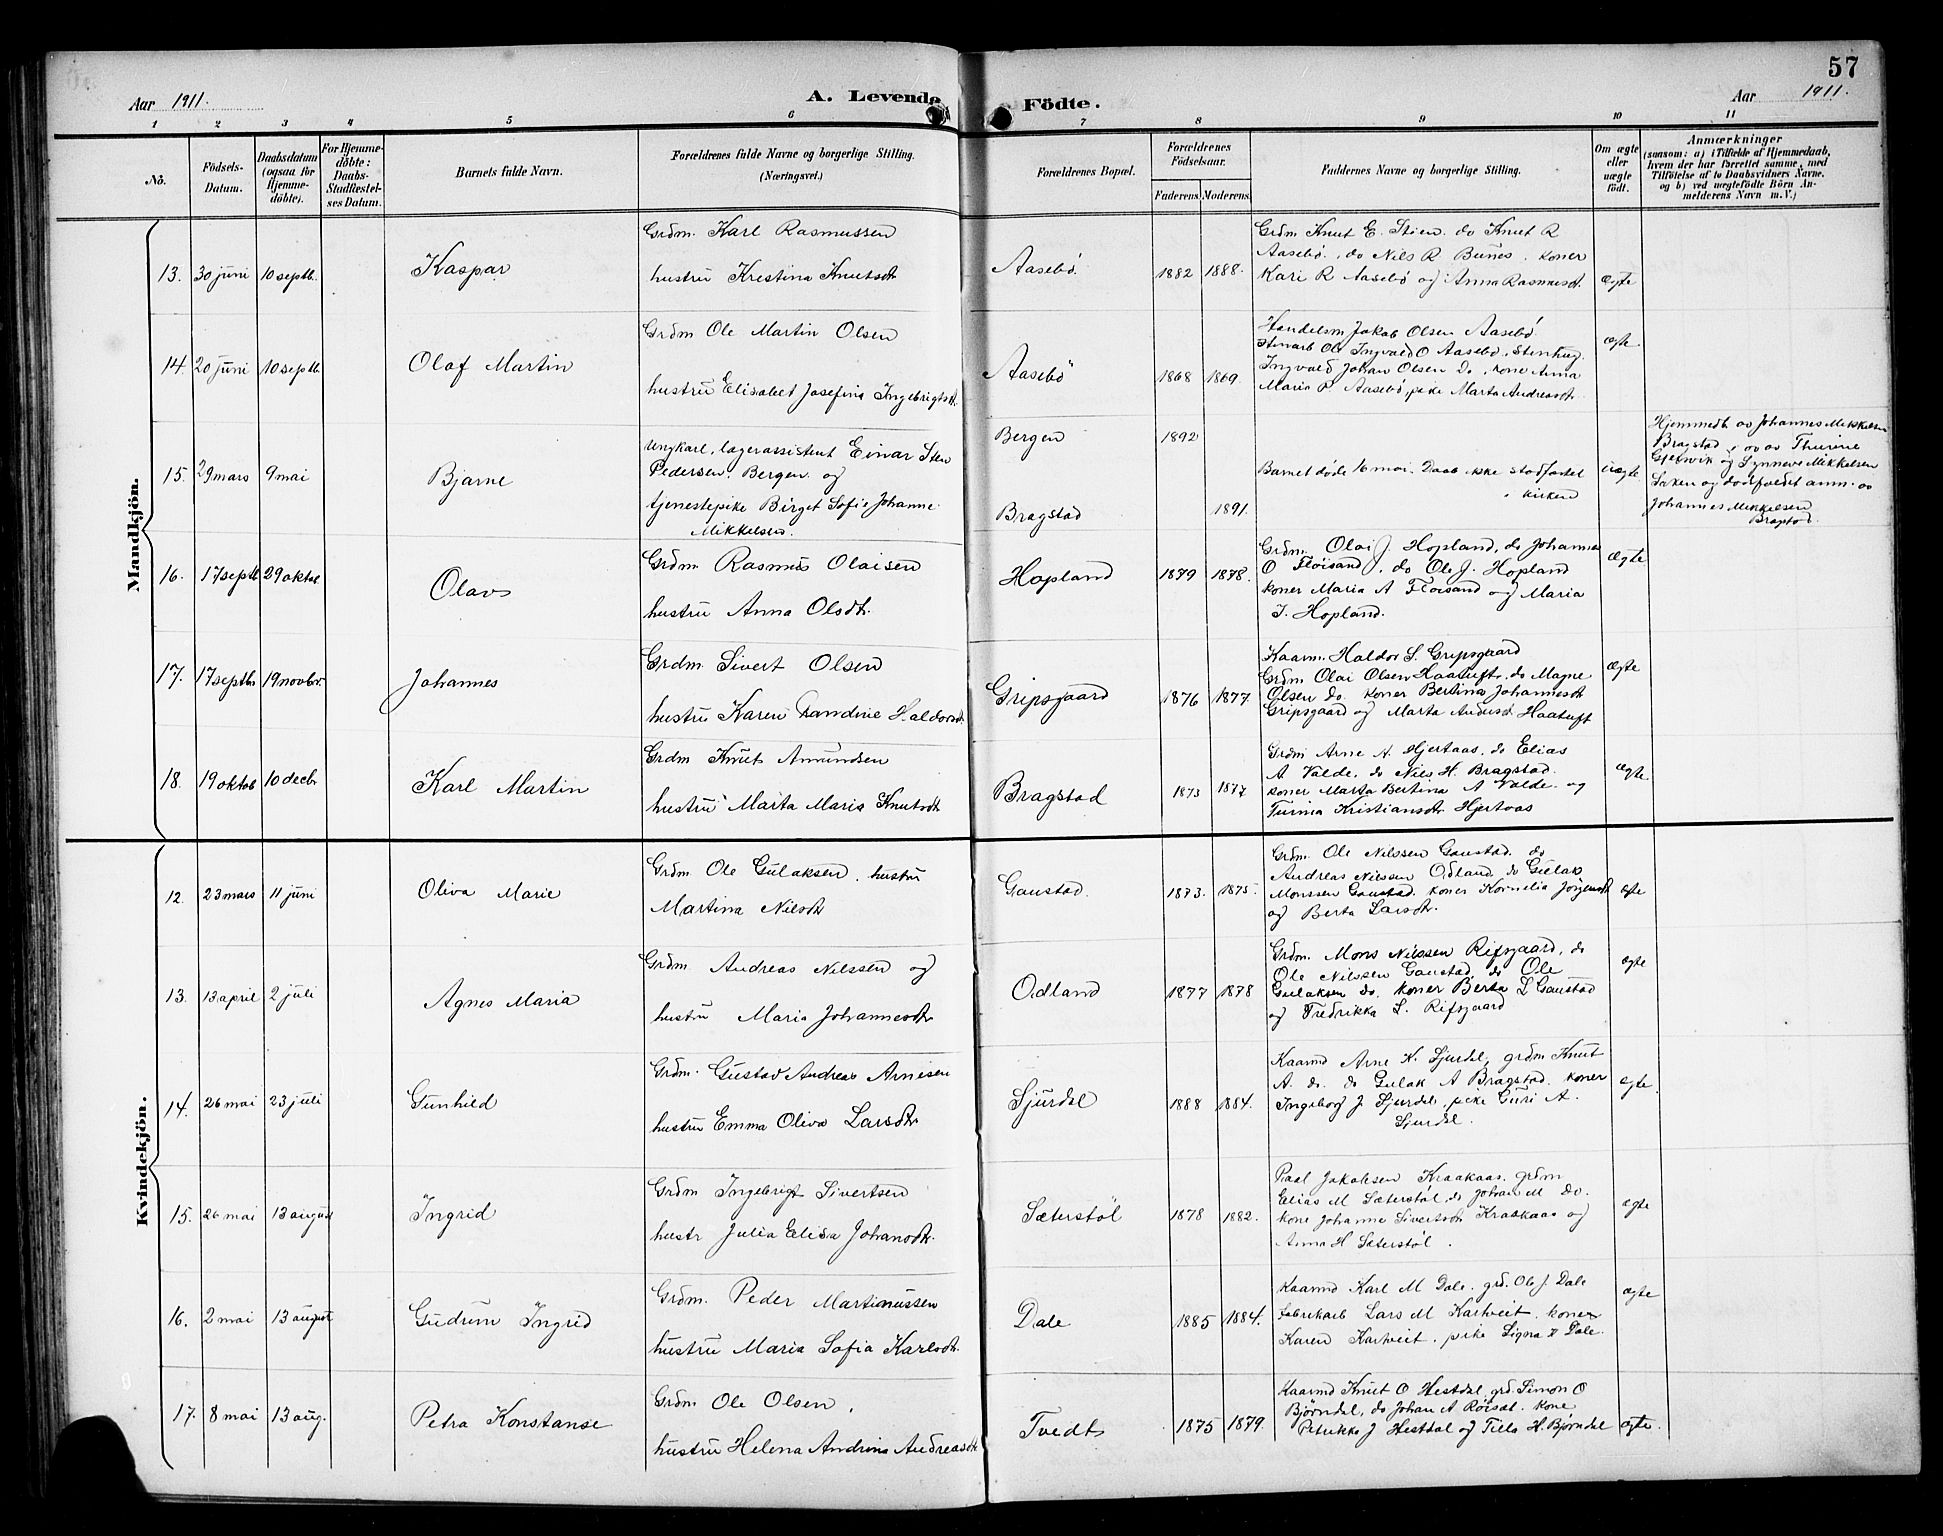 57
Aar 1911.
A. Levende Födte.
Aar 1911.
1 2 3 4 5 6 7 8 9 10 11
No.
Födsels-Datum.
Daabsdatum (ogsaa for Hjemme-döbte).
For Hjemme-döbte: Daabs-Stadfæstel-ses Datum.
Barnets fulde Navn.
Forældrenes fulde Navne og borgerlige Stilling.
(Næringsvei.)
Forældrenes Bopæl.
Forældrenes Födselsaar.
Faderens. Moderens.
Faddernes Navne og borgerlige Stilling.
Om ægte eller uægte födt.
Anmærkninger
(saasom: a) i Tilfælde af Hjemmedaab,
hvem der har forrettet samme, med
Tilföielse af to Daabsvidners Navne,
og b) ved uægtefödte Börn An-
melderens Navn m. V.)
Mandkjön.
13. 30 juni 10 septb. Kaspar
Grdm. Karl Rasmussen
hustru Kristina Knutsdt
Aasebø 1882 1888.
Grdm Knut E. Stien. do Knut R
Aasebø, do Nils R Bunes. koner
Kari R Aasebø og Anna Rasmusdt.
ægte
14. 20 juni 10 septb. Olaf Martin
Grdm Ole Martin Olsen
hustru Elisabet Josefina Ingebrigtsdt.
Aasebø 1868 1869.
Handelsm Jakob Olsen Aasebø
Stenarb Ole Ingvald O Aasebø, Stenhug.
Ingvald Johan Olsen do, kone Anna
Maria P Aasebø, pike Marta Andreasdt.
ægte
15. 29 mars 9 mai Bjarne
Ungkarl, lagerassistent Einar Sten
Pedersen, Bergen og
tjenestepike Birget Sofie Johanne
Mikkelsen.
Bergen 1892
Bragstad 1891.
Barnet døde 16 mai. Daab ikke stadfæstet
i kirken
uægte
Hjemmedt av Johannes Mikkelsen
Bragstad, ov av Thurine
og Synneve Mikkelsen
anm. av
Johannes Mikkelsen
Bragstad.
16. 17 septb 29 oktob Olavs
Grdm Rasmus Olaisen
hustru Anna Olsdt.
Hopland 1879 1878.
Grdm. Olai J. Hopland, do Johannes
O Fløisand, do Ole J. Hopland
koner Maria A Fløisand og Maria
J. Hopland.
Ægte
17. 17 septb. 19 novbr. Johannes
Grdm. Sivert Olsen
hustru Karen Randine Haldorsdt
Gripsgaard 1876 1877
Kaarm. Haldor S. Gripsgaard
Grdm Olai Olsen Haatuft, do Magne
Olsen do. koner Bertina Johannesdt
Gripsgaard og Marta Andersdt Haatuft
Ægte
18. 19 oktob 10 decbr Karl Martin
Grdm Knut Amundsen
hustru Marta Maria Knutsdt
Bragstad 1873 1877
Grdm Arne A. Hjertaas, do Elias
A Valde, do Nils H. Bragstad.
koner Marta Bertina A Valde og
Turina Kristiansdt Hjertaas
Ægte
Kvindekjön.
12. 23 mars 11 juni Oliva Marie
Grdm Ole Gulaksen, hustru
Martina Nilsdt
Gaustad. 1873. 1875.
Grdm. Ole Nilssen Gaustad, do
Andreas Nilssen Odland, do Gulak
Monssen Gaustad. koner Kornelia Jörgensdt
og Berta Larsdt.
ægte
13. 13 april 2 juli Agnes Maria
Grdm Andreas Nilssen og
hustru Maria Johannesdt
Odland 1877 1878
Grdm. Mons Nilssen Rifsgaard, do
Ole Nilssen Gaustad, do Ole
Gulaksen do. koner Berta L Gaustad
og Fredrikka L. Rifsgaard
ægte
14. 26 mai 23 juli Gunhild
Grdm. Gustav Andreas Arnesen
hustru Emma Oliva Larsdt
Sjurdal 1888 1884.
Kaarmd Arne K. Sjurdal, grdm Knut
A. do. do Gulak A Bragstad. koner
Ingeborg J Sjurdal, pike Guri A.
Sjurdal.
ægte
15. 26 mai 13 august Ingrid
Grdm Ingebrigt Sivertsen
hustr Julia Elisa Johansdt.
Sæterstøl 1878 1882.
Paal Jakobsen Kraakaas, grdm
Elias M Sæterstøl, do Johan M do.
kone Johanna Sivertsdt Kraakaas og
Anna H Sæterstøl.
ægte
16. 2 mai 13 august Gudrun Ingrid
Grdm. Peder Martinussen
hustru Maria Sofia Karlsdt.
Dale 1885 1884.
Kaarmd Karl M Dale, grd. Ole J. Dale
fabrikarb Lars M Kartveit. koner
Karen Kartveit, pike Signa Dale.
ægte
17. 8 mai 13 aug. Petra Konstanse
Grdm Ole Olsen,
hustru Helena Andrina Andreasdt
Tvedt 1875 1879.
Kaarmd Knut O Hestdal, grd. Simon O
Bjørndal, do Johan A Röisal. kone
Petrikka J Hestdal og Tilla H. Bjørndal
ægte.